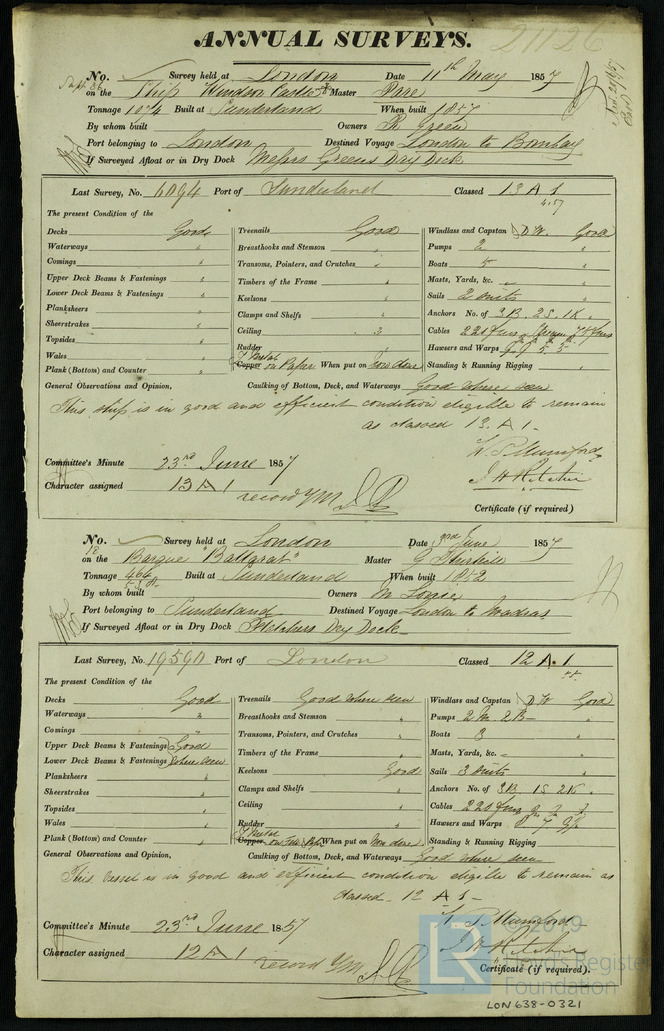 ANNUAL SURVEYS.
21126
No. Survey held at London Date 11th May 1857
on the Ship Windsor Castle Master Pare
Tonnage 1074 Built at Sunderland When built 1857
By whom built Owners R Green
Port belonging to London Destined Voyage London to Bombay
If Surveyed Afloat or in Dry Dock Messrs Greens Dry Dock
Last Survey, No. 6094 Port of Sunderland Classed 13 A 1
4.57
The present Condition of the
Decks Good
Waterways "
Comings "
Upper Deck Beams & Fastenings "
Lower Deck Beams & Fastenings "
Planksheers "
Sheerstrakes "
Topsides "
Wales "
Plank (Bottom) and Counter "
Treenails Good
Breasthooks and Stemson "
Transoms, Pointers, and Crutches "
Timbers of the Frame "
Keelsons "
Clamps and Shelfs "
Ceiling "
Rudder
Y Metal
Copper on Paper When put on Now done
Windlass and Capstan D W. Good
Pumps 2 "
Boats 5 "
Masts, Yards, &c. "
Sails 2 Suits "
Anchors No. of 3B. 2S. 1K. "
Cables 220 fms
Hawsers and Warps "
Standing & Running Rigging "
General Observations and Opinion, Caulking of Bottom, Deck, and Waterways Good where seen
This Ship is in good and efficient condition eligible to remain
as classed 13. A 1 -
W. P. Mumford
J H Ritchie
Committee's Minute 23rd June 1857
Character assigned 13 A 1
record YM
Certificate (if required)
No. Survey held at London Date 3rd June 1857
18
on the Barque "Ballarat" Master G Thirkell
Tonnage 464 Built at Sunderland When built 1852
By whom built Owners
Port belonging to Sunderland Destined Voyage London to Madras
If Surveyed Afloat or in Dry Dock Fletchers Dry Dock
Last Survey, No. 19590 Port of London Classed 12 A.1
The present Condition of the
Decks Good
Waterways "
Comings "
Upper Deck Beams & Fastenings Good
Lower Deck Beams & Fastenings where seen
Planksheers "
Sheerstrakes "
Topsides "
Wales "
Plank (Bottom) and Counter "
Treenails Good where seen
Breasthooks and Stemson "
Transoms, Pointers, and Crutches "
Timbers of the Frame "
Keelsons Good
Clamps and Shelfs "
Ceiling "
Rudder
Y Metal
Copper on When put on Now done
Windlass and Capstan D W Good
Pumps 2 M. 2B - "
Boats 3 "
Masts, Yards, &c. - "
Sails 3 Suits "
Anchors No. of 3B 1S. 2K. "
Cables 220 fms
Hawsers and Warps
Standing & Running Rigging
General Observations and Opinion, Caulking of Bottom, Deck, and Waterways Good where seen
This vessel is in good and efficient condition eligible to remain as
classed - 12 A 1 -
W P Mumford
J H Ritchie
Committee's Minute 23rd June 1857
Character assigned 12 A 1
record YM.
Certificate (if required).
© 2019
Lloyd's Register
Foundation
LR
LON638-0321